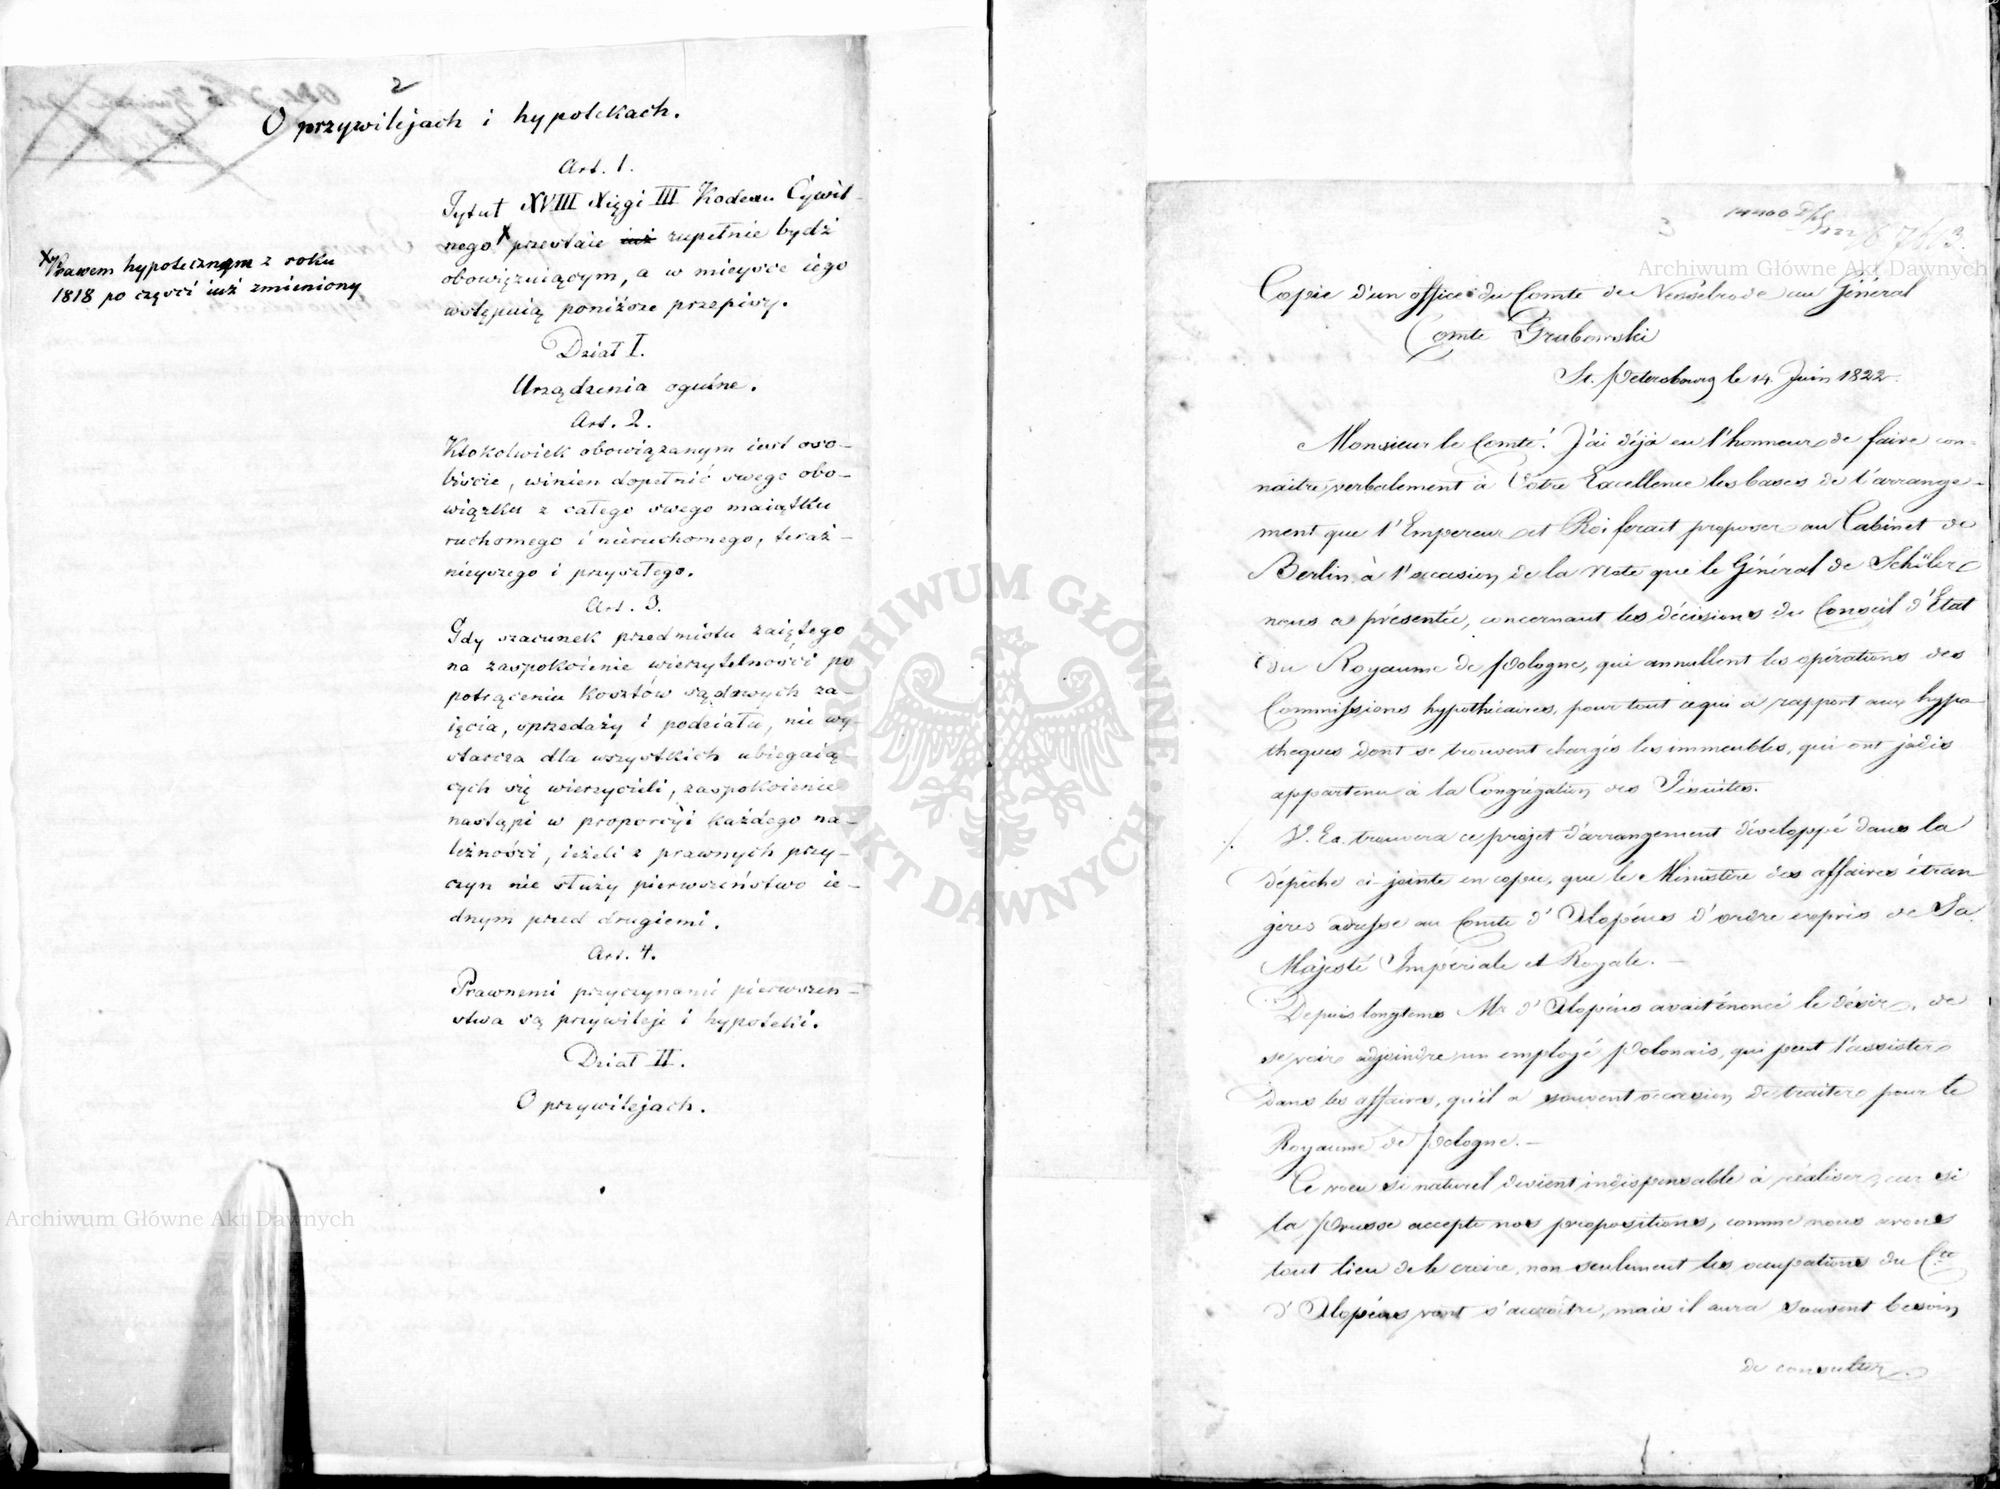 2
O przywilejach i hypotekach.
Art. 1.
Tytuł XVIII Xięgi III Kodexu Cywil-
nego x przestaie już zupełnie bydź
obowiązuiącym, a w mieysce iego
wstępuią poniższe przepisy.
x Prawem hypotecznym z roku
1818 po części iuż zmieniony
Dział I.
Urządzenia ogulne.
Art. 2.
Ktokolwiek obowiązanym iest oso-
biście, winien dopełnić swego obo-
wiązku z całego swego maiątku
ruchomego i nieruchomego, teraź-
nieyszego i przyszłego.
Art. 3.
Gdy szacunek przedmiotu zaiętego
na zaspokoienie wierzytelności po
potrąceniu kosztów sądowych za-
ięcia, sprzedaży i podziału, nie wy-
starcza dla wszystkich ubiegaią-
cych się wierzycieli, zaspokoienie
nastąpi w proporcyi każdego na-
leżności, ieżeli z prawnych przy-
czyn nie służy pierwszeństwo ie-
dnym przed drugiemi.
Art. 4.
Prawnemi przyczynami pierwszeń-
stwa są przywileje i hypoteki.
Dział II.
O przywilejach.
3
Copie d'un office du Comte de Nesselrode au Général
Comte Grabowski
St. Petersbourg le 14 Juin 1822.
Monsieur le Comte! J'ai déjà eu l'honneur de faire con-
naitre verbalement à Votre Excellence les bases de l'arrange-
ment que l'Empereur et Roi ferait proposer au Cabinet de
Berlin à l'occasion de la Note que le Général de Schöler
nous a présentée, concernant les décisions du Conseil d'Etat
du Royaume de Pologne, qui annullent les opérations des
Commissions hypothécaires, pour tout ce qui a rapport aux hypo-
theques dont se trouvent chargés les immeubles, qui ont jadis
appartenu à la Congrégation des Jésuites.
V. Ex. trouvera ce projet d'arrangement développé dans la
dépêche ci-jointe en copie, que le Ministère des affaires étran-
gères adresse au Comte d'Alopéus d'ordre exprès de Sa
Majesté Impériale et Royale. —
Depuis longtems Mr d'Alopéus avait énoncé le désir, de
se voir adjoindre un employé Polonais, qui peut l'assister
dans les affaires, qu'il a souvent occasion de traiter pour le
Royaume de Pologne. —
Ce voeu si naturel devient indispensable à réaliser, car si
la Prusse accepte nos propositions, comme nous avons
tout lieu de le croire, non seulement les occupations du Cte
d'Alopéus vont s'accroître, mais il aura souvent besoin
de consulter
Archiwum Główne Akt Dawnych
Archiwum Główne Akt Dawnych
ARCHIWUM GŁÓWNE AKT DAWNYCH